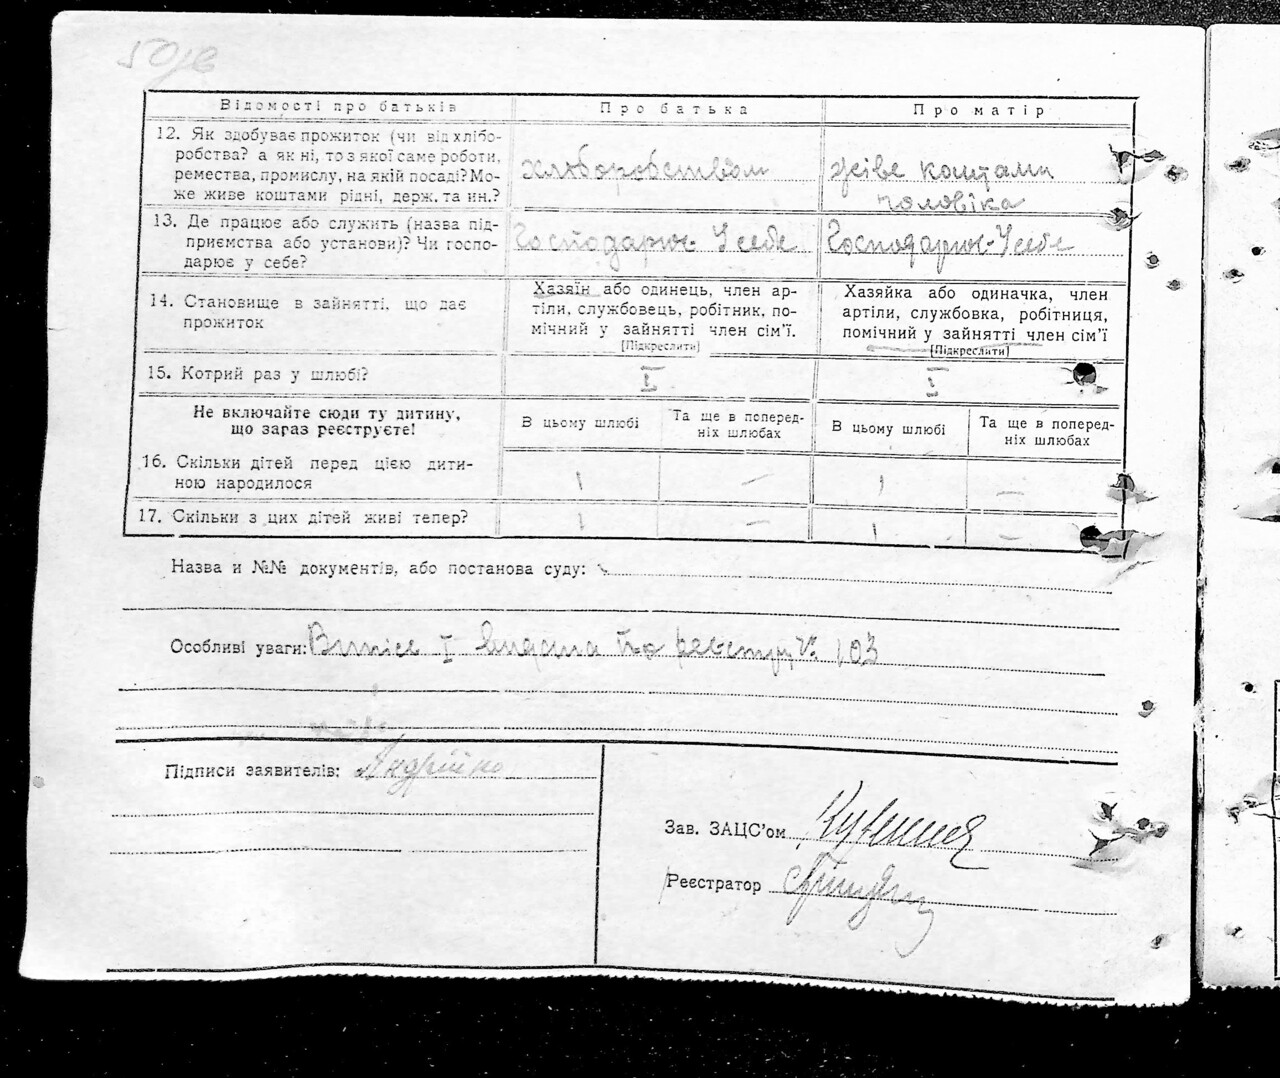 50зв
Відомості про батьків
Про батька
Про матір
12. Як здобуває прожиток (чи від хлібо-
робства? а як ні, то з якої саме роботи,
ремества, промислу, на якій посаді? Мо-
же живе коштами рідні, держ. та ин.?
хлиборобством
жіве коштами
чоловіка
13. Де працює або служить (назва під-
приємства або установи)? Чи госпо-
дарює у себе?
Господарює У себе
Господарює У себе
14. Становище в зайнятті, що дає
прожиток
Хазяїн або одинець, член ар-
тіли, службовець, робітник, по-
мічний у зайнятті член сім'ї.
(Підкреслити)
Хазяйка або одиначка, член
артіли, службовка, робітниця,
помічний у зайнятті член сім'ї
(Підкреслити)
15. Котрий раз у шлюбі?
I
I
Не включайте сюди ту дитину,
що зараз реєструєте!
В цьому шлюбі
Та ще в поперед-
ніх шлюбах
В цьому шлюбі
Та ще в поперед-
ніх шлюбах
16. Скільки дітей перед цією дити-
ною народилося
1 — 1 —
17. Скільки з цих дітей живі тепер?
1 — 1 —
Назва и №№ документів, або постанова суду:
Особливі уваги: Випісь I видана По реєстру № 103
Підписи заявителів: Андрійко
Зав. ЗАЦС'ом
Реєстратор